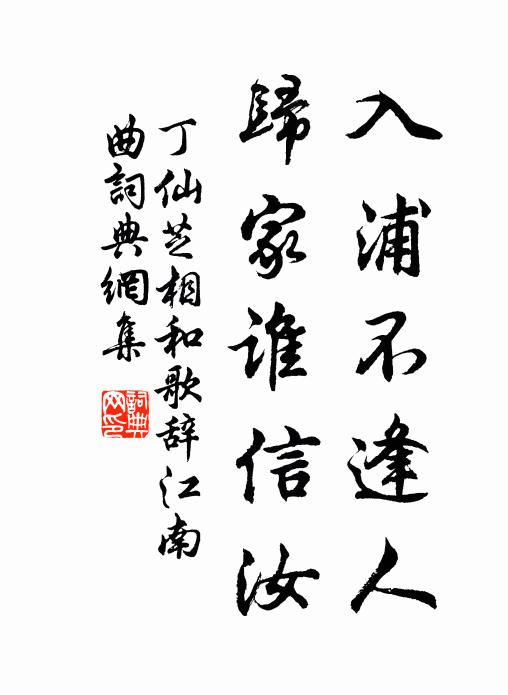 入浦不逢人
歸家谁信汝
丁仙芝相和歌辞江南
曲詞典網集
詞典
网印